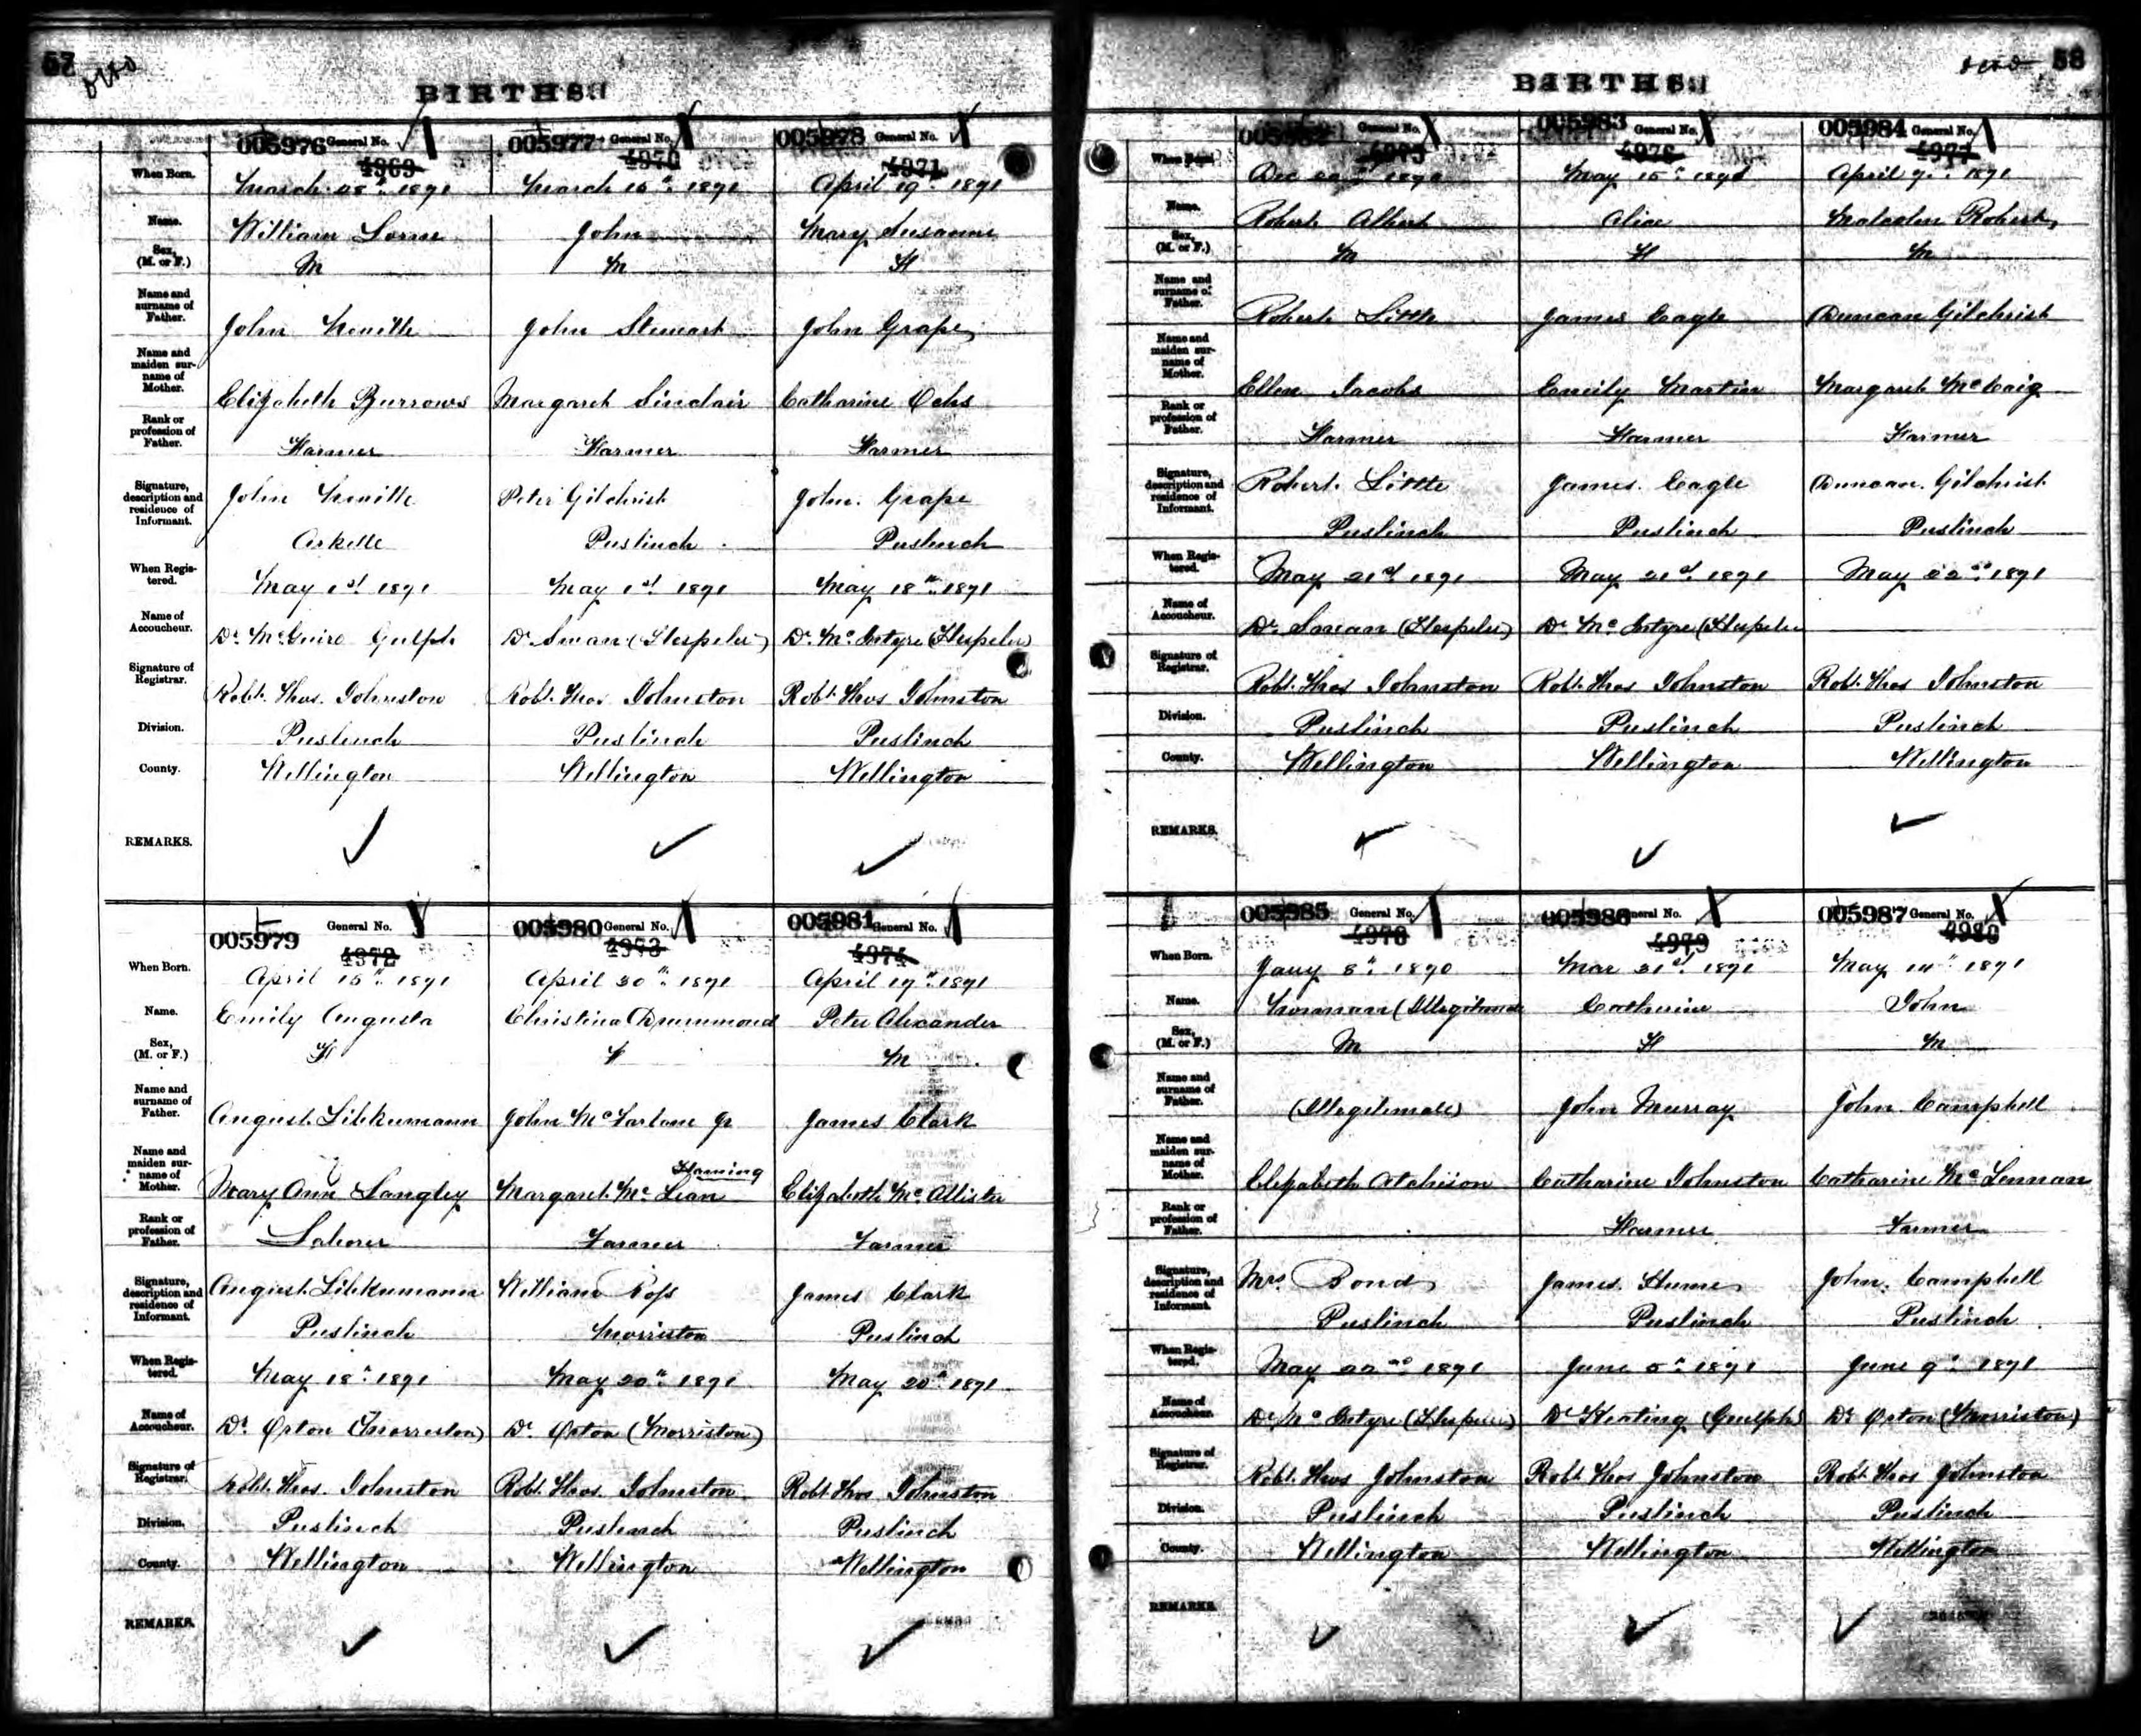 57
BIRTHS
005976 General No. 005977 General No. 005978 General No.
4969 4970 4971
When Born. March 28th 1891 March 15th 1891 April 19th 1891
Name. William Lorne John Mary Susanne
Sex, (M. or F.) M M F
Name and surname of Father. John John Stewart John Grape
Name and maiden surname of Mother. Elizabeth Burrows Margaret Sinclair Catharine Ochs
Rank or profession of Father. Farmer Farmer Farmer
Signature, description and residence of Informant. John Peter Gilchrist John Grape
Arkell Puslinch Puslinch
When Registered. May 1st 1891 May 1st 1891 May 18th 1891
Name of Accoucheur. Dr. McGuire Gulph Dr. Swan (Hespeler) Dr. McIntyre (Hespeler)
Signature of Registrar. Robt. Thos. Johnston Robt. Thos Johnston Robt Thos Johnston
Division. Puslinch Puslinch Puslinch
County. Wellington Wellington Wellington
REMARKS.
005979 General No. 005980 General No. 005981 General No.
4972 4973 4974
When Born. April 15th 1891 April 30th 1891 April 19th 1891
Name. Emily Augusta Christina Drummond Peter Alexander
Sex, (M. or F.) F F M
Name and surname of Father. August Libkumann John McFarlane Jr James Clark
Name and maiden surname of Mother. Mary Ann Langley Margaret McLean Elizabeth McAllister
Rank or profession of Father. Laborer Farmer Farmer
Signature, description and residence of Informant. August Libkumann William Ross James Clark
Puslinch Morriston Puslinch
When Registered. May 18th 1891 May 20th 1891 May 20th 1891
Name of Accoucheur. Dr. Orton (Morriston) Dr. Orton (Morriston)
Signature of Registrar. Robt. Thos. Johnston Robt. Thos. Johnston Robt Thos Johnston
Division. Puslinch Puslinch Puslinch
County. Wellington Wellington Wellington
REMARKS.
58
BIRTHS
General No. 005983 General No. 005984 General No.
4975 4976 4977
When Born. Dec 1890 May 15th April 9th 1891
Name. Robert Albert Alice Malcolm Robert
Sex, (M. or F.) M F M
Name and surname of Father. Robert Little James Cagle Duncan Gilchrist
Name and maiden surname of Mother. Ellen Jacobs Emily Martin Margaret McCaig
Rank or profession of Father. Farmer Farmer Farmer
Signature, description and residence of Informant. Robert Little James Cagle Duncan Gilchrist
Puslinch Puslinch Puslinch
When Registered. May 21st 1891 May 21st 1891 May 22nd 1891
Name of Accoucheur. Dr. Swan (Hespeler) Dr. McIntyre (Hespeler
Signature of Registrar. Robt. Thos Johnston Robt. Thos Johnston Robt. Thos Johnston
Division. Puslinch Puslinch Puslinch
County. Wellington Wellington Wellington
REMARKS.
005985 General No. 005986 General No. 005987 General No.
4978 4979 4980
When Born. Jany 8th 1890 Mar 31st 1891 May 1891
Name. Norman (Illegitimate Catherine John
Sex, (M. or F.) M F M
Name and surname of Father. (Illegitimate) John Murray John Campbell
Name and maiden surname of Mother. Elizabeth Atchison Catharine Johnston Catharine McLennan
Rank or profession of Father. Farmer Farmer
Signature, description and residence of Informant. Mrs. Bond James Hume John Campbell
Puslinch Puslinch Puslinch
When Registered. May 22nd 1891 June 1891 June 9th 1891
Name of Accoucheur. Dr McIntyre (Hespeler) Dr Keating (Guelph) Dr Orton (Morriston)
Signature of Registrar. Robt. Thos Johnston Robt Thos Johnston Robt Thos Johnston
Division. Puslinch Puslinch Puslinch
County. Wellington Wellington Wellington
REMARKS.